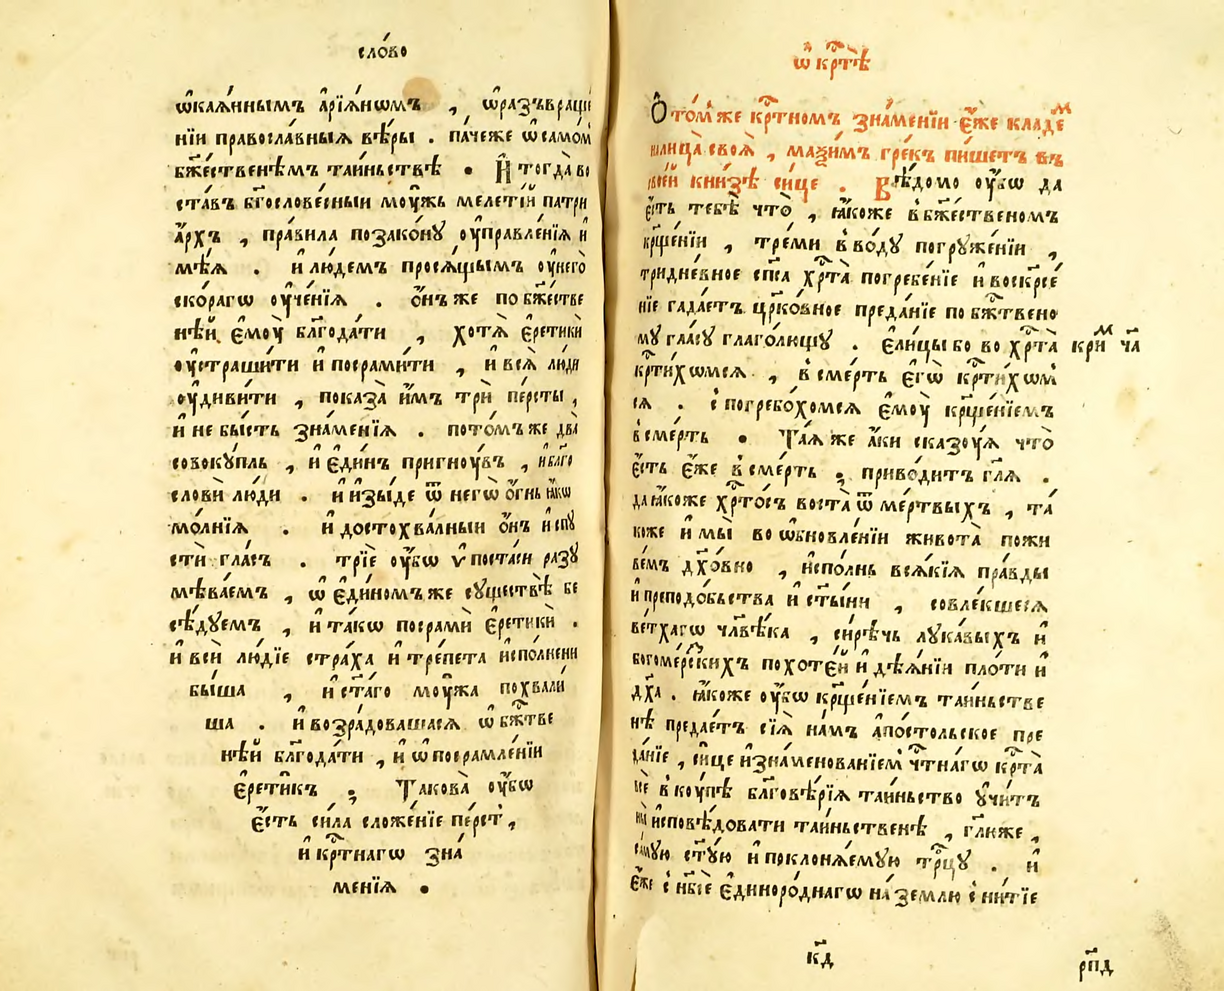 сло́во
ѡ҆кая́ннымъ а҆рїя́нѡмъ , ѡ҆разъвраще́
нїи правосла́вныѧ вѣ́ры . па́чеже ѡ҆само́м
бж҃е́ственѣмъ таи́ньствѣ . И҆ тогда̀ во
ста́въ бг҃осло́ве́сныи моу́жь меле́тїи патри
а́рхъ , пра́вила позако́ну оу҆правле́нїѧ и҆
мѣ́ѧ . и҆лю́демъ прося́щымъ оу҆него̀
ско́рагѡ оу҆че́нїѧ . о҆́нъ же по бж҃е́стве
нѣ́й є҆моу̀ бл҃года́ти , хотѧ̀ є҆ретикѝ
оу҆страши́ти и҆ посрами́ти , и҆ всѧ̀ лю́ди
оу҆диви́ти , показа̀ и҆̀мъ трѝ пе́рсты ,
и҆ не бы́сть зна́менїѧ . пото́мъ же два̀
совоку́пль , и҆ є҆ди́нъ пригноу́въ , и҆бл҃го
словѝ лю́ди . и҆ и҆зы́де ѿ него̀ о҆́гнь ꙗ҆́кѡ
мо́лнїѧ . и҆ достохва́лныи о҆́нъ и҆спу
стѝ гла́съ . трїѐ оу҆́бѡ ѵ҆поста́си разу
мѣва́емъ , ѡ҆ є҆ди́номъ же существѣ̀ бе
сѣ́дуемъ , и҆ та́кѡ посрамѝ є҆ретикѝ .
и҆ всѝ лю́дїе стра́ха и҆ тре́пета и҆спо́лнени
бы́ша , и҆ ст҃а́го моу́жа похвали́
ша . и҆ возра́довашасѧ ѡ҆ бж҃тве
нѣ́й бл҃года́ти , и҆ ѡ҆ посрамле́нїи
є҆рети́къ . Такова̀ оу҆́бѡ
є҆́сть си́ла сложе́нїе пе́рст ,
и҆ крⷭ҇тнагѡ зна́
менїѧ .
ѡ҆ крⷭ҇тѣ̀
Ѻ҆ то́м же крⷭ҇тномъ зна́менїи є҆́же кладеⷨ
на лица̀ своѧ̀ , маѯи́мъ гре́къ пи́шетъ въ
свое́й кни́зѣ си́це . Вѣ́домо оу҆́бѡ да
є҆́сть тебѣ̀ что̀ , ꙗ҆́коже в бж҃е́ственомъ
крщ҃е́нїи , тре́ми в во́ду погруже́нїи ,
тридне́вное сп҃са хрⷭ҇та̀ погребе́нїе и҆ воскр҃се́
нїе гада́етъ цр҃ко́вное преда́нїе по бж҃твено
му гла́су глаго́лющу . є҆ли́цы бо во хрⷭ҇та̀
криⷨ ча̑
крⷭ҇ти́хѡмсѧ , в сме́рть є҆гѡ̀ крⷭ҇ти́хѡм
сѧ . с погребо́хомсѧ є҆моу̀ крщ҃е́нїемъ
в сме́рть . Та́ѧ же а҆́ки сказоу́ѧ что̀
є҆́сть є҆́же в сме́рть ; приво́дитъ гл҃ѧ .
да ꙗ҆́коже хрⷭ҇то́съ воста̀ ѿ ме́ртвыхъ , та́
коже и҆ мы̀ во ѡ҆бновле́нїи живота̀ пожи
ве́мъ дх҃о́вно , и҆спо́лнь всѧ́кїѧ пра́вды
и҆ преподо́бьства и҆ ст҃ы́ни , совле́кшесѧ
ве́тхагѡ чл҃вѣ́ка , си́рѣчь лука́выхъ и҆
богоме́рскихъ похоте́й и҆ дѣѧ́нїи пло́ти и҆
дх҃а . ꙗ҆́коже оу҆́бѡ крщ҃е́нїемъ таи́ньстве
нѣ предае́тъ сїѧ̀ на́мъ а҆по́стольское пре
да́нїе , си́це и҆зна́менованїем чⷭ҇тна́гѡ крⷭ҇та̀
всѐ в коу́пѣ бл҃говѣ́рїѧ таи́ньство у҆чи́тъ
ны̀ и҆сповѣ́довати таи́ньственѣ , гл҃ю́же ,
са́мую ст҃у́ю и҆ поклонѧ́емую трⷪ҇цу . и҆
є҆́же с нб҃сѐ є҆диноро́днагѡ на́ землю сни́тїе
к҃д
рп҃д